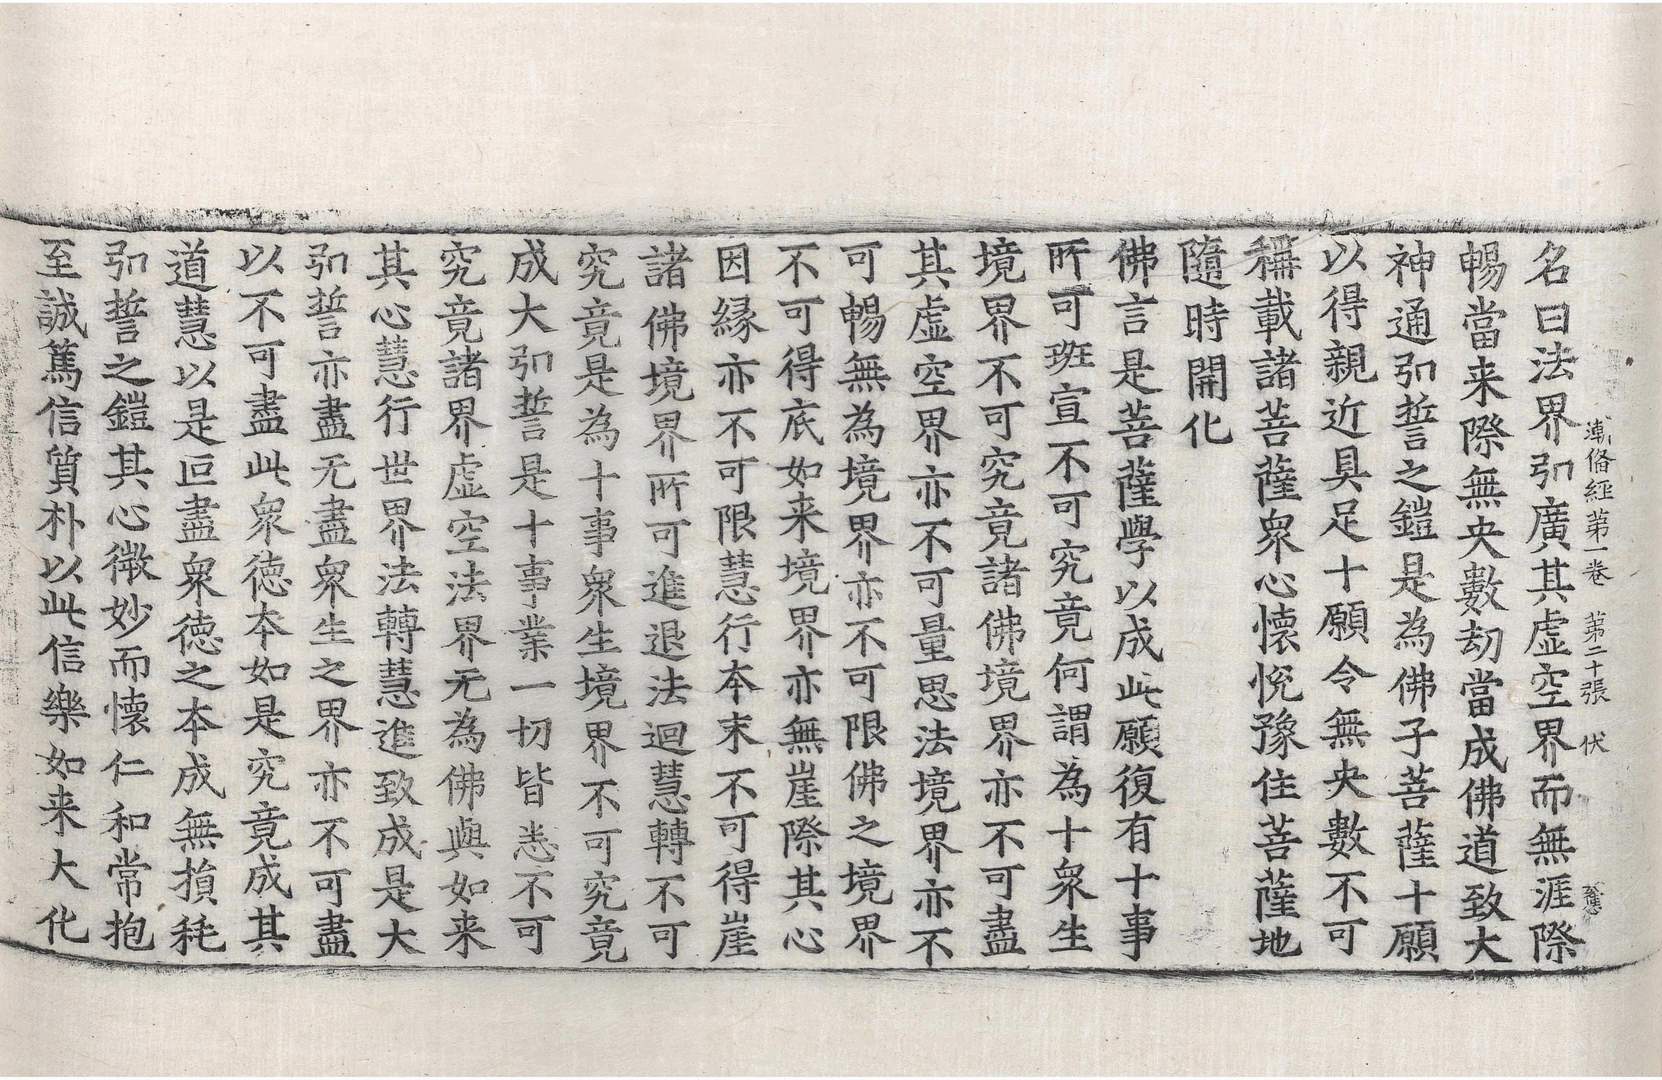 漸俻經第一卷　第二十張　伏
名曰法界弘廣其虛空界而無涯際
暢當来際無央數劫當成佛道致大
神通弘誓之鎧是為佛子菩薩十願
以得親近具足十願令無央數不可
稱載諸菩薩衆心懷恱豫住菩薩地
隨時開化
佛言是菩薩學以成此願復有十事
所可班宣不可究竟何謂為十衆生
境界不可究竟諸佛境界亦不可盡
其虛空界亦不可量思法境界亦不
可暢無為境界亦不可限佛之境界
不可得底如来境界亦無崖際其心
因縁亦不可限慧行本末不可得崖
諸佛境界所可進退法迴慧轉不可
究竟是為十事衆生境界不可究竟
成大弘誓是十事業一切皆悉不可
究竟諸界虛空法界无為佛與如来
其心慧行世界法轉慧進致成是大
弘誓亦盡无盡衆生之界亦不可盡
以不可盡此衆徳本如是究竟成其
道慧以是叵盡衆徳之本成無損耗
弘誓之鎧其心微妙而懷仁和常抱
至誠篤信質朴以此信樂如来大化